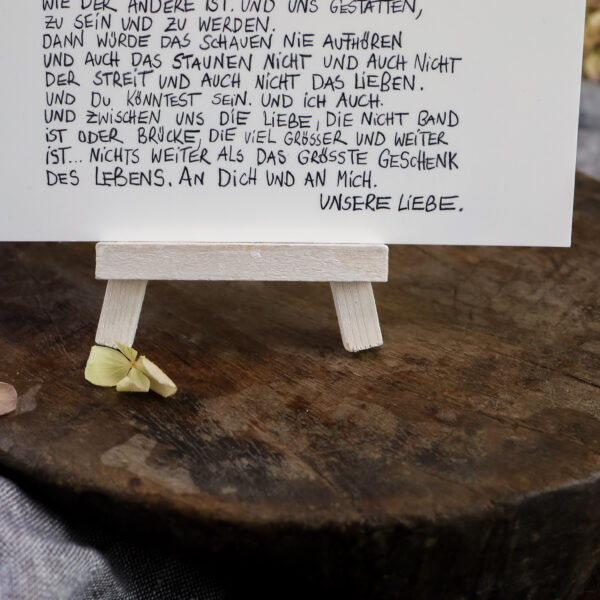 WIE DER ANDERE IST. UND UNS GESTATTEN,
ZU SEIN UND ZU WERDEN.
DANN WÜRDE DAS SCHAUEN NIE AUFHÖREN
UND AUCH DAS STAUNEN NICHT UND AUCH NICHT
DER STREIT UND AUCH NICHT DAS LIEBEN.
UND DU KÖNNTEST SEIN. UND ICH AUCH.
UND ZWISCHEN UNS DIE LIEBE, DIE NICHT BAND
IST ODER BRÜCKE, DIE VIEL GRÖSSER UND WEITER
IST... NICHTS WEITER ALS DAS GRÖSSTE GESCHENK
DES LEBENS. AN DICH UND AN MICH.
UNSERE LIEBE.